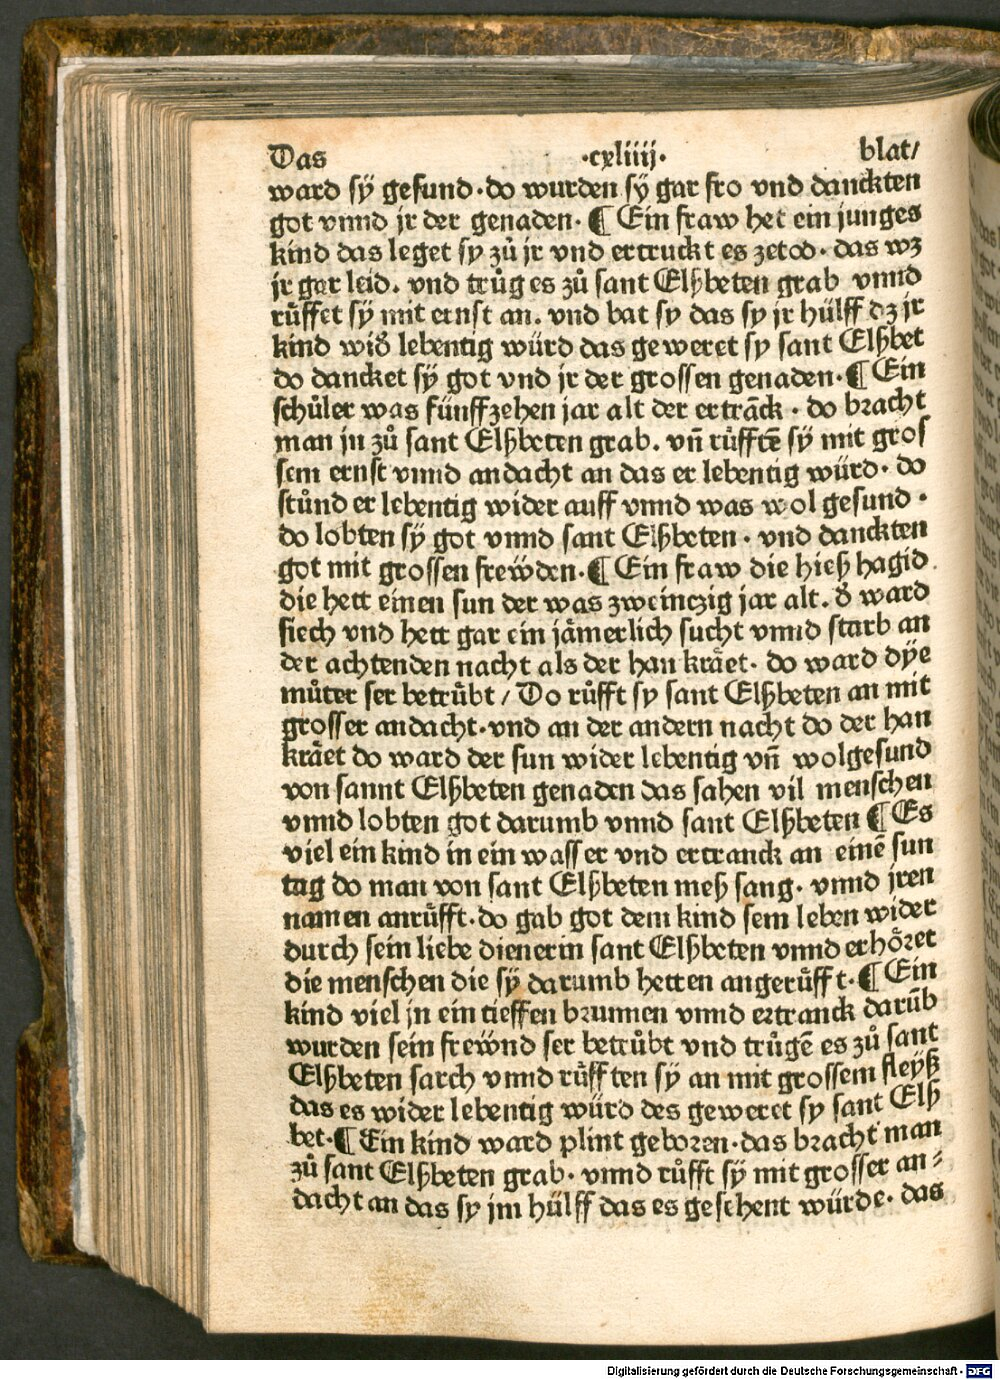 Das ·cxliiij· blat/
ward sÿ gefund·do wurden sÿ gar fro vnd danckten
got vnnd jr der genaden· ¶ Ein fraw het ein junges
kind das leget sy zů jr vnd ertruckt es zetod· das wz
jr gar leid. vnd trůg es zů sant Elßbeten grab vnnd
růffet sÿ mit ernst an. vnd bat sy das sy jr hülff dz jr
kind wiď lebentig würd das geweret sy sant Elßbet
do dancket sÿ got vnd jr der grossen genaden·¶ Ein
schůler was fünffzehen jar alt der ertrāck · do bracht
man jn zů sant Elßbeten grab. vn̄ růfftē sÿ mit gros
sem ernst vnnd andacht an das er lebentig würd· do
stůnd er lebentig wider auff vnnd was wol gesund ·
do lobten sÿ got vnnd sant Elßbeten · vnd danckten
got mit grossen frewden·¶ Ein fraw die hieß hagid.
die hett einen sun der was zweinczig jar alt. ď ward
siech vnd hett gar ein jämerlich sucht vnnd starb an
der achtenden nacht als der han kräet· do ward dÿe
můter ser betrůbt / Do růfft sy sant Elßbeten an mit
grosser andacht·vnd an der andern nacht do der han
kräet do ward der sun wider lebentig vn̄ wolgesund
von sannt Elßbeten genaden das sahen vil menschen
vnnd lobten got darumb vnnd sant Elßbeten ¶ Es
viel ein kind in ein wasser vnd ertranck an einē sun
tag do man von sant Elßbeten meß sang· vnnd jren
namen anrůfft·do gab got dem kind sein leben wider
durch sein liebe dienerin sant Elßbeten vnnd erhöret
die menschen die sÿ darumb hetten angerůfft·¶ Ein
kind viel jn ein tieffen brunnen vnnd ertranck darūb
wurden sein frewnd ser betrůbt vnd trůgē es zů sant
Elßbeten sarch vnnd růfften sÿ an mit grossem fleyß
das es wider lebentig würd des geweret sy sant Elß
bet·¶ Ein kind ward plint geboren·das bracht man
zů sant Elßbeten grab· vnnd růfft sÿ mit grosser an⸗
dacht an das sy jm hülff das es gesehent würde· das
Digitalisierung gefördert durch die Deutsche Forschungsgemeinschaft - DFG